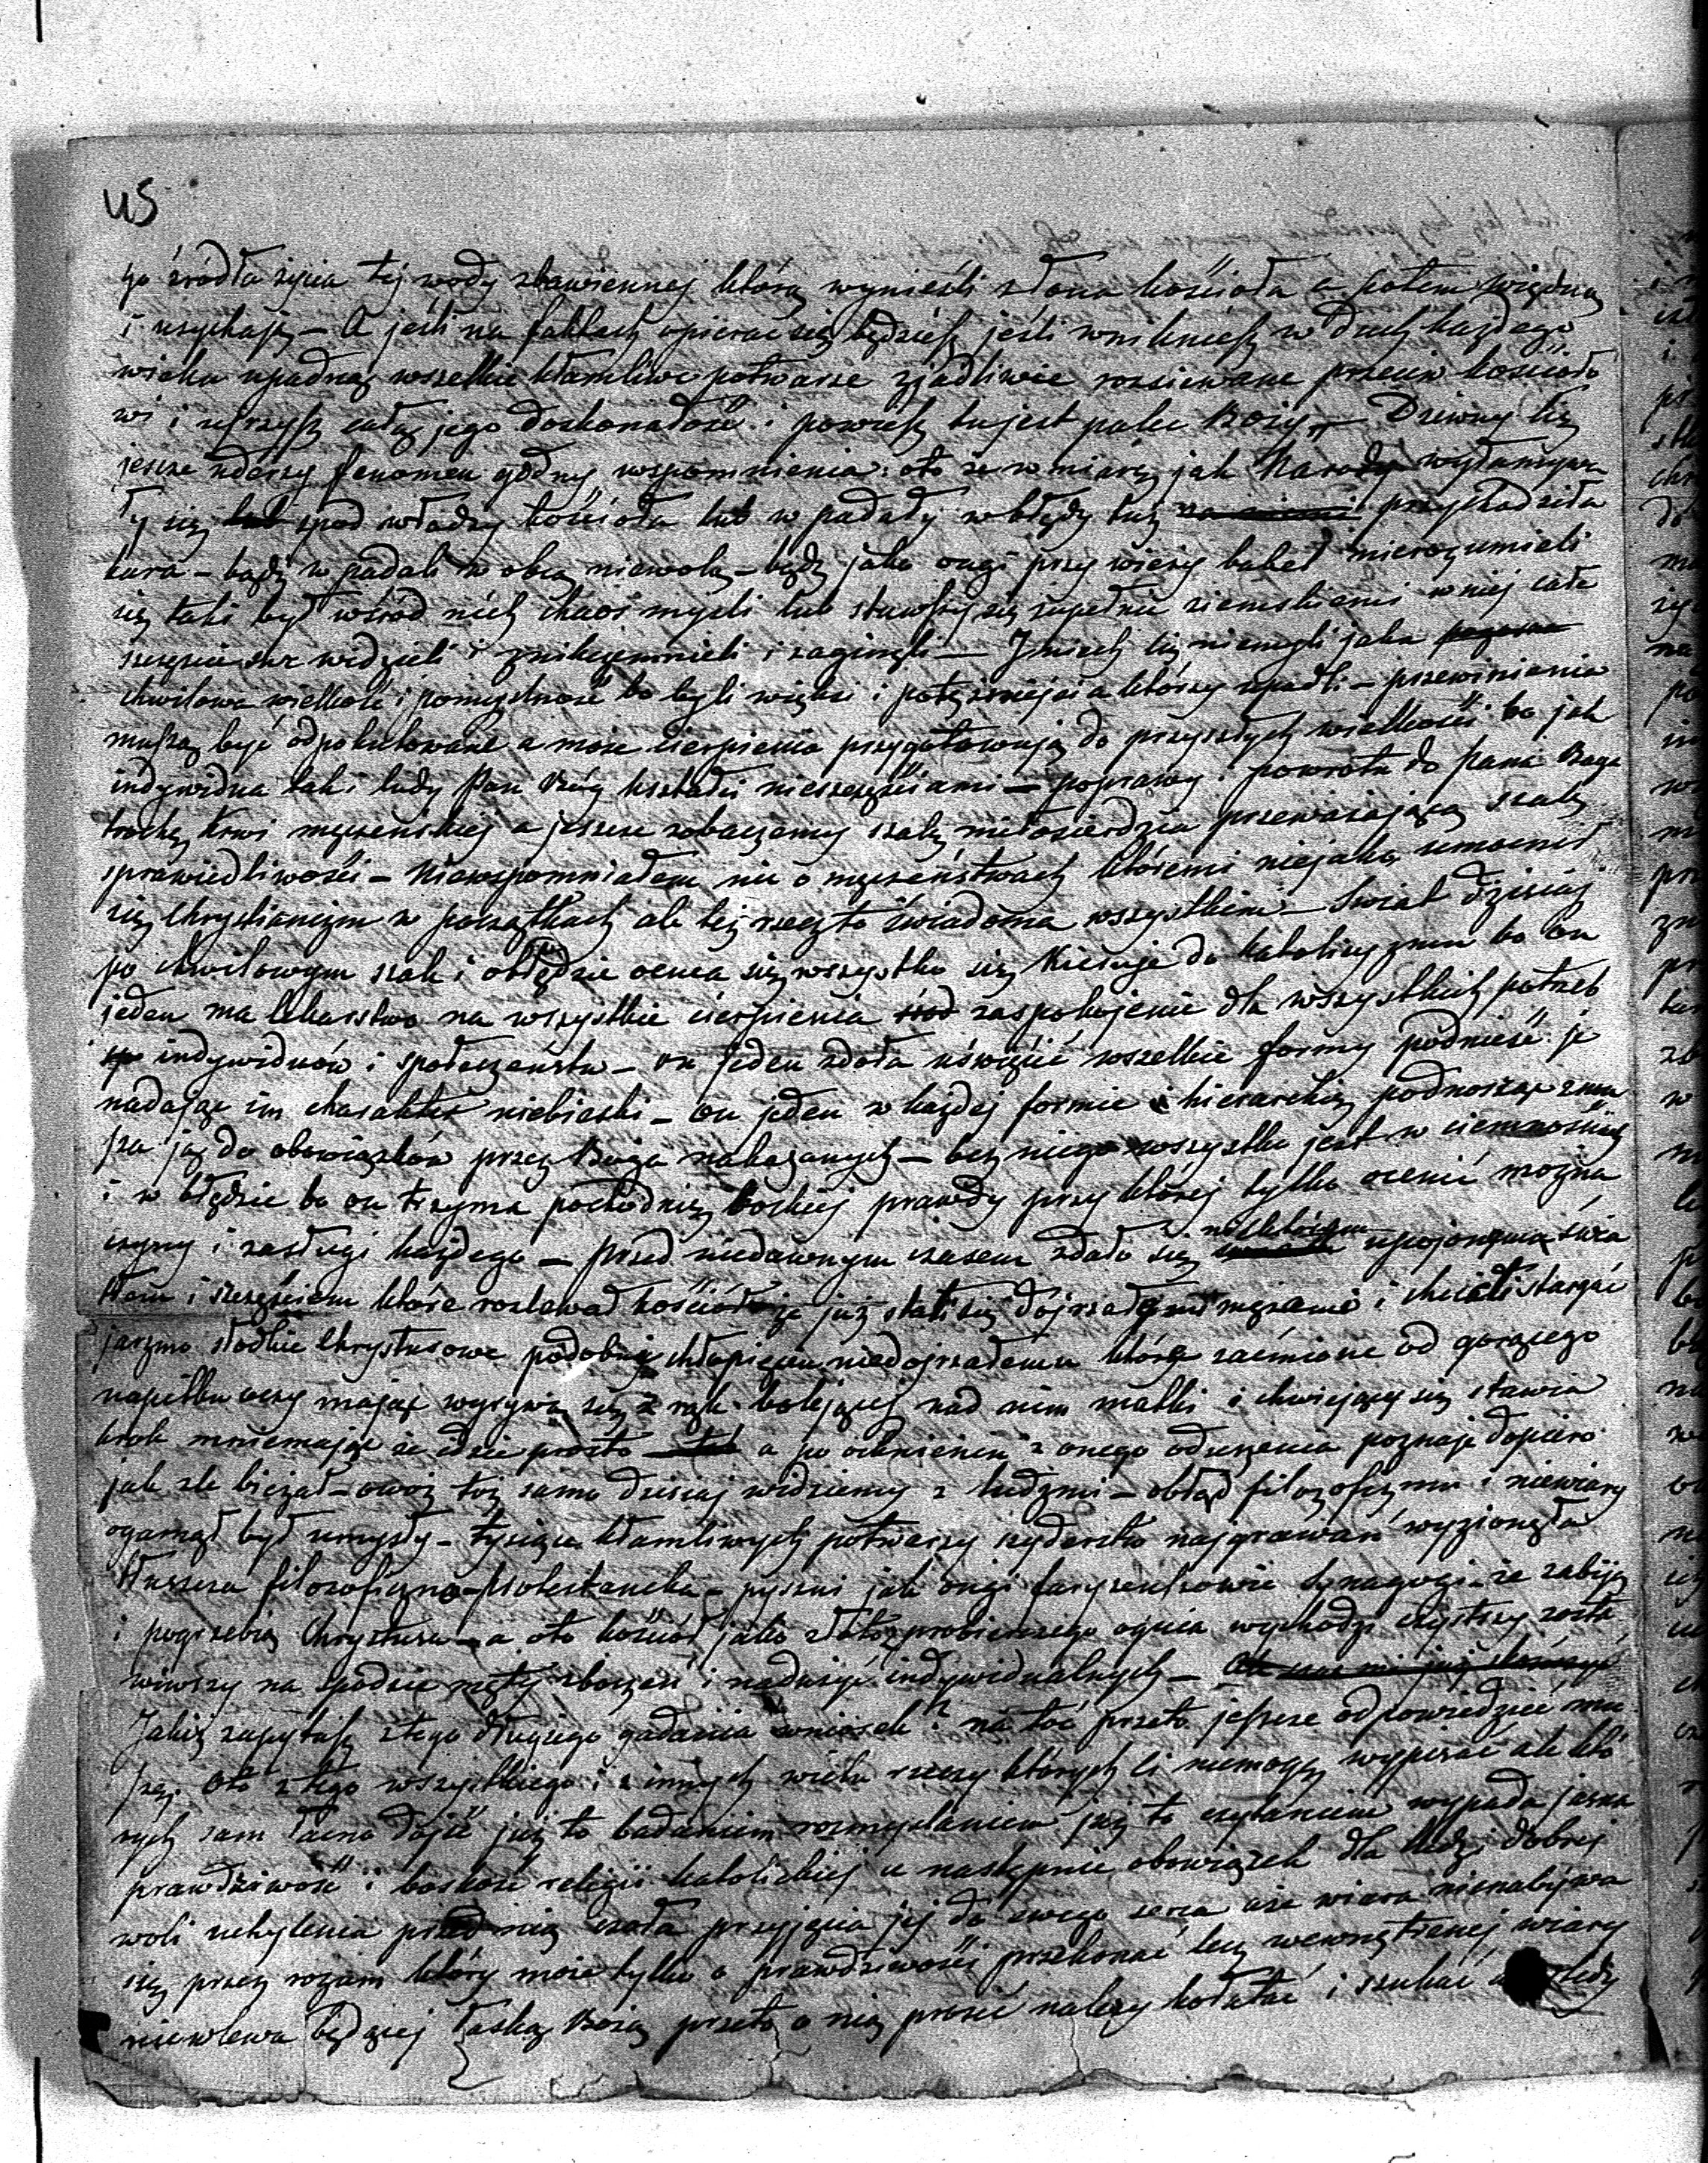 45
go źródła życia tej wody zbawiennej którą wynieśli z łona kościoła a potem więdną
i usychają – A jeśli na faktach opierać się będziesz jeśli wnikniesz w duch każdego
wieku upadną wszelkie kłamliwe potwarze zjadliwie rozsiewane przeciw kościoło
wi i ujrzysz całą jego doskonałość i powiesz tu jest palec Boży – Dziwny też
jescze uderzy fenomen godny wspomnienia: oto że w miarę jak Narody wyłamywa
ły się spod władzy kościoła lub wpadały w błędy tuż przychodziła
kara – bądź wpadali w obcą niewolą – bądź jako ongi przy wieży babel nierozumieli
się taki był wśród nich chaos myśli lub stawszy się zupełnie ziemskiemi w niej całe
szczęście swe widzieli i znikczemnieli i zaginęli – I niech cię niemyli jaka
chwilowa wielkość i pomyślność bo byli więksi i potężniejsi a którzy upadli – przewinienia
muszą być odpokutowane a może cierpienia przygotowują do przyszłych wielkości bo jak
indywidua tak i ludy Pan Bóg kształci nieszczęściami – poprawy i powrotu do pana Boga
trochę krwi męczeńskiej a jeszcze zobaczemy szalę miłosierdzia przeważającą szalę
sprawiedliwości – Niewspomniałem nic o męczeństwach któremi niejako umocnił
się Chrystianizm w początkach ale też rzecz to świadoma wszystkim – Świat dzisiaj
po chwilowym szale i obłędzie ocuca się wszystko się kieruje do katolicyzmu bo on
jeden ma lekarstwo na wszystkie cierpienia zaspokojenie dla wszystkich potrzeb
indywiduów i społeczeństw – on jeden zdoła uświęcić wszelkie formy podnieść je
nadając im charakter niebieski – on jeden w każdej formie i hierarchię podnosząc zmu
sza ją do obowiązków przez Boga nakazanych – bez niego wszystko jest w ciemnościach
i w błędzie bo on trzyma pochodnię boskiej prawdy przy której tylko ocenić można
czyny i zasługi każdego – przed niedawnym czasem zdało się niektórym upojonym świa
tłem i szczęściem które rozlewał kościół że już stali się dojrzałemi mężami i chcieli starzać
jarzmo słodkie Chrystusowe podobnie chłopięciu niedojrzałemu które zaćmione od gorącego
napitku oczy mając wyrywa się z rąk bolejącej nad nim matki i chwiejący się stawia
krok mniemając że idzie prosto a po ocknieniu z onego odurzenia poznaje dopiero
jak źle bieżał – owoż toż samo dzisiaj widziemy z ludźmi – obłąd filozofizmu i niewiary
ogarnął był umysły – tysiące kłamliwych potwarzy szyderstw najgrawań wyzionęła
tłuszcza filozoficzno-protestancka – pyszni jak ongi faryzeuszowie Synagogi że zabiją
i pogrzebią Chrystusa – a oto kościół jako złoto z probierczego ognia wychodzi czystszy zosta
wiwszy na spodzie męty zboczeń i nadużyć indywidualnych –
Jakiż zapytasz z tego długiego gadania wniosek? na toć przeto jeszcze odpowiedzieć mu
szę. Oto z tego wszystkiego i z innych wielu rzeczy których ci niemogę wypisać ale któ
rych sam łacno dojść już to badaniem rozmyślaniem już to czytaniem wypada jasna
prawdziwość i boskość religii katolickiej a następnie obowiązek dla ludzi dobrej
woli uchylenia przed nią czoła przyjęcia jej do swego serca że wiara nienabywa
się przez rozum który może tylko o prawdziwości przekonać lecz wewnętrznej wiary
niewlewa będącej łaską Bożą przeto o nią prosić należy kołatać i szukać